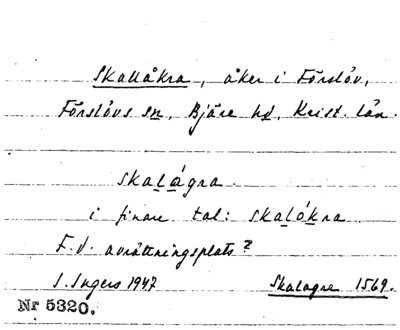 Skallåkra, åker i Förslöv,
Förslövs sn, Bjäre hd, Krist. län.
skalågra.
i finare tal: skalókra
F.d. avrättningsplats?
I. Ingers 1947 Skalagre 1569.
Nr 5320.